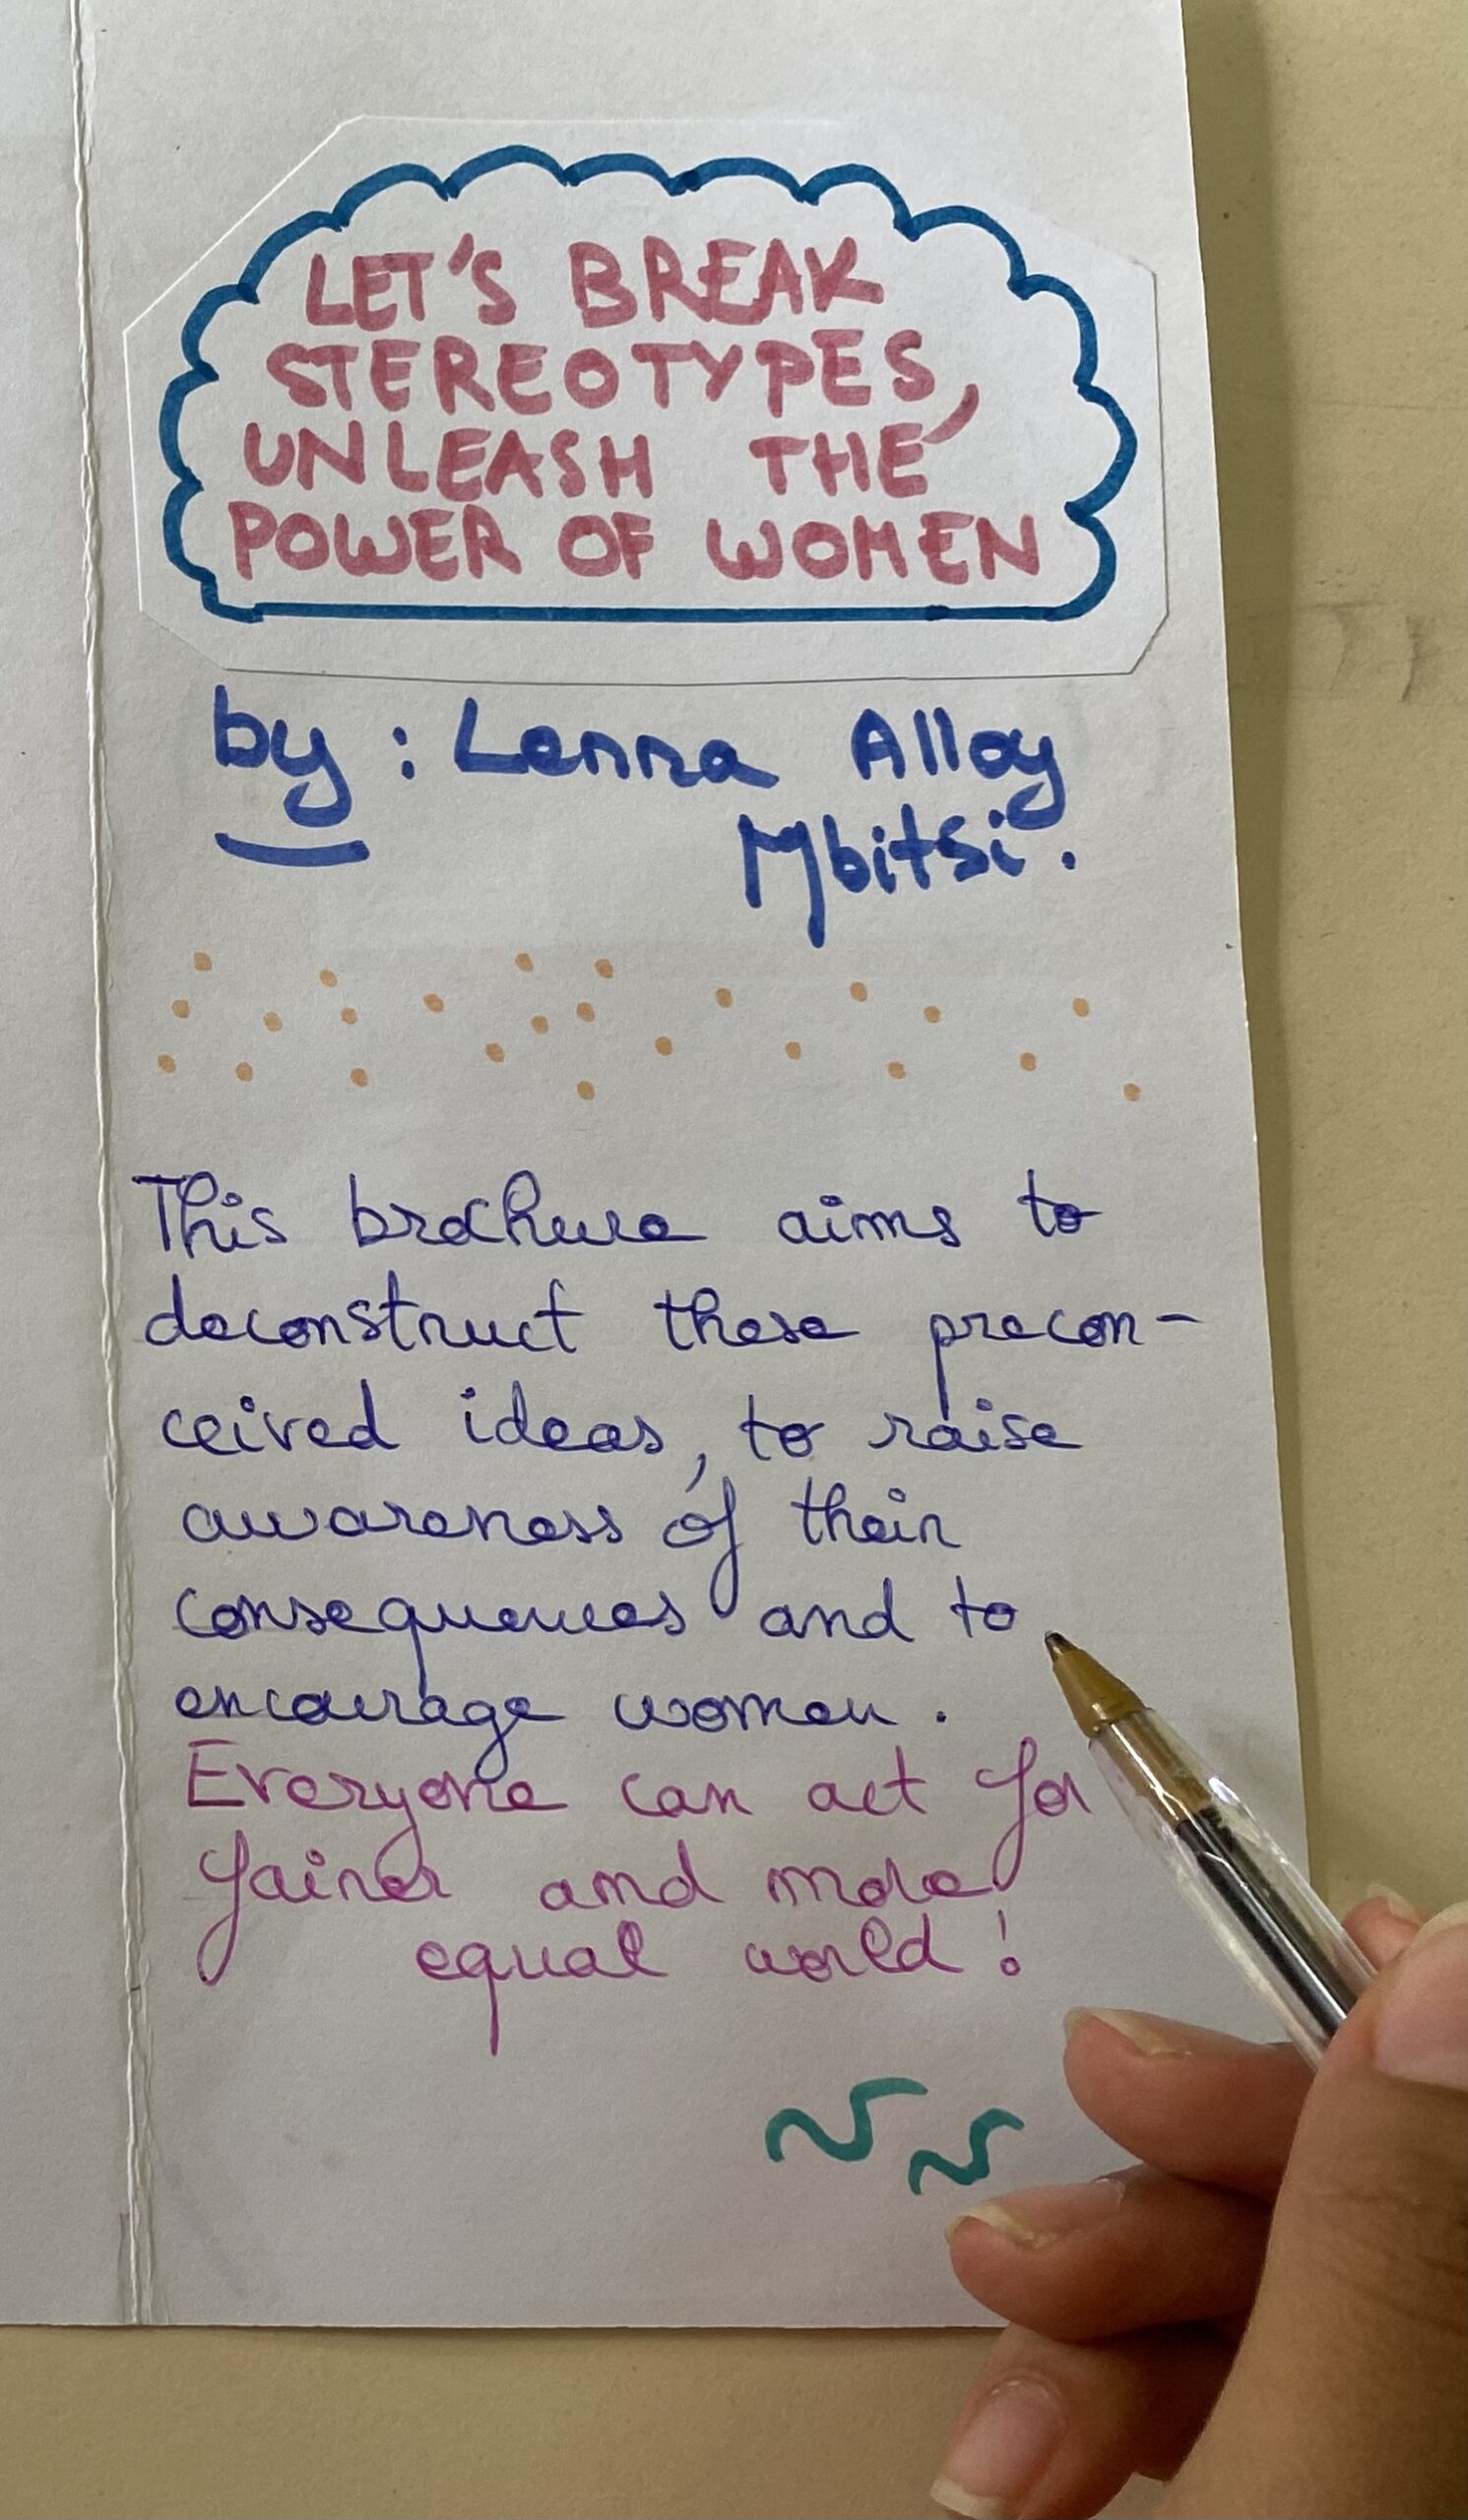 LET'S BREAK
STEREOTYPES,
UNLEASH THE
POWER OF WOMEN
by : Lenna Alloy
Mbitsi.
This brochure aims to
deconstruct these precon-
ceived ideas, to raise
awareness of their
consequences and to
encourage women.
Everyone can act for
fairer and more
equal world !